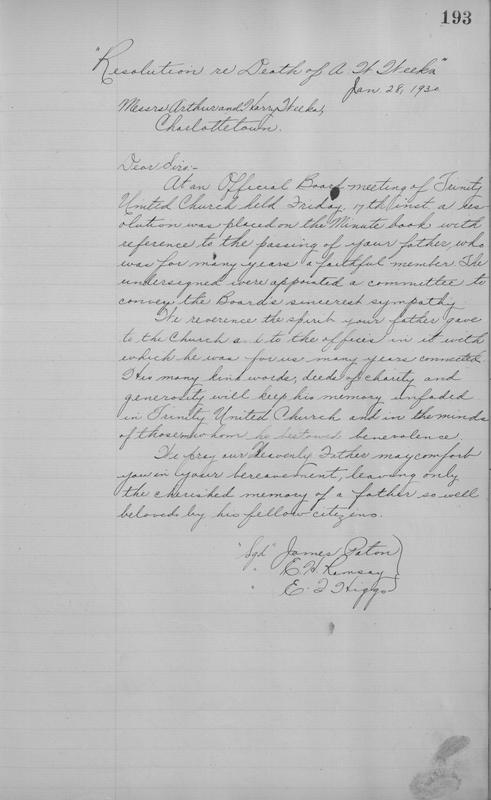 193
"Resolution re Death of A. W. Weeks"
Jan 28, 1930
Messrs Arthur and Harry Weeks,
Charlottetown.
Dear Sirs:-
At an Official Board meeting of Trinity
United Church held Friday, 17th inst a Res
olution was placed on the Minute book with
reference to the passing of your father, who
was for many years a faithful member The
undersigned were appointed a committee to
convey the Boards sincerest sympathy.
We reverence the spirit your father gave
to the Church and to the offices in it with
which he was for many years connected.
His many kind words, deeds of charity and
generosity will keep his memory unfaded
in Trinity United Church and in the minds
of those whom he bestowed benevolence.
We pray our Heavenly Father may comfort
you in your bereavement, leaving only
the cherished memory of a father so well
beloved by his fellow citizens.
"Sgd" James Paton
" E. H. Ramsay
" E. T. Higgs